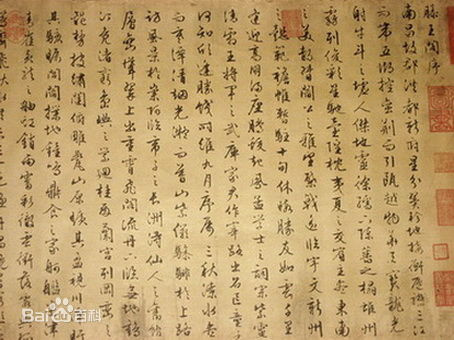 滕王閣序
南昌故郡洪都新府星分翼軫地接衡廬襟三江
而帶五湖控蠻荊而引甌越物華天寶龍光
射牛斗之墟人傑地靈徐孺下陳蕃之榻雄州
霧列俊彩星馳臺隍枕夷夏之交賓主盡東南
之美都督閻公之雅望棨戟遙臨宇文新州
之懿範襜帷暫駐十旬休暇勝友如雲千里
逢迎高朋滿座騰蛟起鳳孟學士之詞宗紫電
清霜王將軍之武庫家君作宰路出名區童子
何知躬逢勝餞時維九月序屬三秋潦水盡
而寒潭清烟光凝而暮山紫儼驂騑於上路
訪風景於崇阿臨帝子之長洲得仙人之舊館
層巒聳翠上出重霄飛閣流丹下臨無地鶴
汀鳧渚窮島嶼之縈迴桂殿蘭宮列岡巒之
體勢披繡闥俯雕甍山原曠其盈視川澤盱
其駭矚閭閻撲地鐘鳴鼎食之家舸艦迷津
青雀黃龍之舳虹銷雨霽彩徹雲衢落霞與
Bai百科